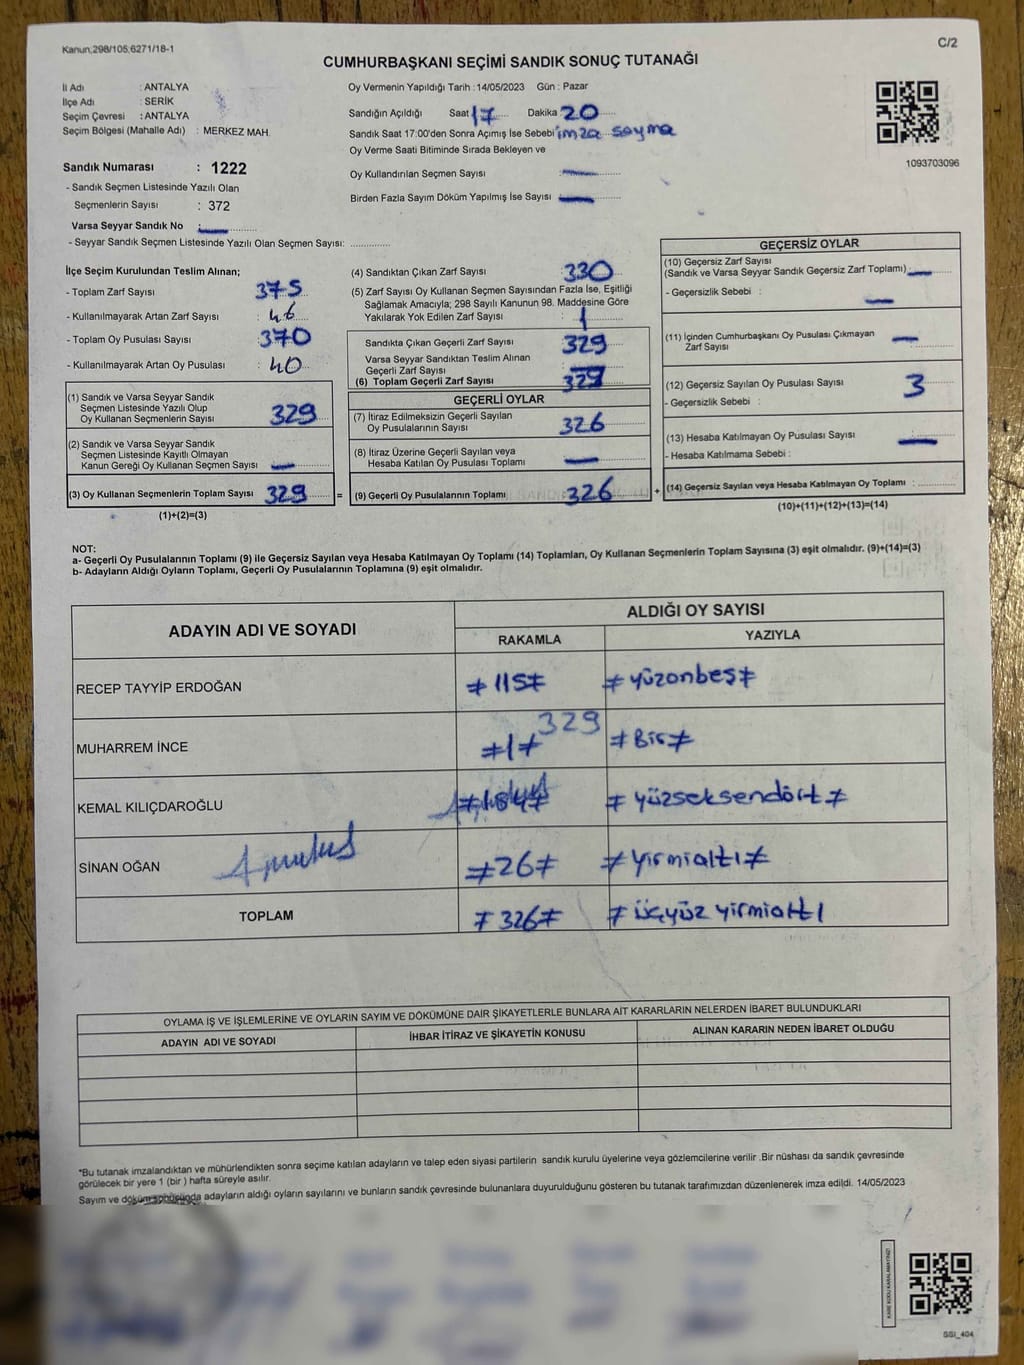 Kanun;298/105;6271/18-1
C/2
CUMHURBAŞKANI SEÇİMİ SANDIK SONUÇ TUTANAĞI
İl Adı : ANTALYA
İlçe Adı : SERİK
Seçim Çevresi : ANTALYA
Seçim Bölgesi (Mahalle Adı) : MERKEZ MAH.
Oy Vermenin Yapıldığı Tarih : 14/05/2023 Gün : Pazar
Sandığın Açıldığı Saat 17 Dakika 20
Sandık Saat 17:00'den Sonra Açımış İse Sebebi imza sayma
Oy Verme Saati Bitiminde Sırada Bekleyen ve
Oy Kullandırılan Seçmen Sayısı :
Birden Fazla Sayım Döküm Yapılmış İse Sayısı
1093703096
Sandık Numarası : 1222
- Sandık Seçmen Listesinde Yazılı Olan
Seçmenlerin Sayısı : 372
Varsa Seyyar Sandık No :
- Seyyar Sandık Seçmen Listesinde Yazılı Olan Seçmen Sayısı: ..............
İlçe Seçim Kurulundan Teslim Alınan;
- Toplam Zarf Sayısı : 375
- Kullanılmayarak Artan Zarf Sayısı : 46
- Toplam Oy Pusulası Sayısı : 370
- Kullanılmayarak Artan Oy Pusulası : 40
(1) Sandık ve Varsa Seyyar Sandık
Seçmen Listesinde Yazılı Olup
Oy Kullanan Seçmenlerin Sayısı : 329
(2) Sandık ve Varsa Seyyar Sandık
Seçmen Listesinde Kayıtlı Olmayan
Kanun Gereği Oy Kullanan Seçmen Sayısı :
(3) Oy Kullanan Seçmenlerin Toplam Sayısı : 329
(1)+(2)=(3)
(4) Sandıktan Çıkan Zarf Sayısı : 330
(5) Zarf Sayısı Oy Kullanan Seçmen Sayısından Fazla İse, Eşitliği
Sağlamak Amacıyla; 298 Sayılı Kanunun 98. Maddesine Göre
Yakılarak Yok Edilen Zarf Sayısı : 1
Sandıkta Çıkan Geçerli Zarf Sayısı : 329
Varsa Seyyar Sandıktan Teslim Alınan
Geçerli Zarf Sayısı
(6) Toplam Geçerli Zarf Sayısı : 329
GEÇERLİ OYLAR
(7) İtiraz Edilmeksizin Geçerli Sayılan
Oy Pusulalarının Sayısı : 326
(8) İtiraz Üzerine Geçerli Sayılan veya
Hesaba Katılan Oy Pusulası Toplamı :
= (9) Geçerli Oy Pusulalarının Toplamı : 326 +
GEÇERSİZ OYLAR
(10) Geçersiz Zarf Sayısı
(Sandık ve Varsa Seyyar Sandık Geçersiz Zarf Toplamı)
- Geçersizlik Sebebi :
(11) İçinden Cumhurbaşkanı Oy Pusulası Çıkmayan
Zarf Sayısı
(12) Geçersiz Sayılan Oy Pusulası Sayısı : 3
- Geçersizlik Sebebi :
(13) Hesaba Katılmayan Oy Pusulası Sayısı :
- Hesaba Katılmama Sebebi :
(14) Geçersiz Sayılan veya Hesaba Katılmayan Oy Toplamı : ............
(10)+(11)+(12)+(13)=(14)
NOT:
a- Geçerli Oy Pusulalarının Toplamı (9) ile Geçersiz Sayılan veya Hesaba Katılmayan Oy Toplamı (14) Toplamları, Oy Kullanan Seçmenlerin Toplam Sayısına (3) eşit olmalıdır. (9)+(14)=(3)
b- Adayların Aldığı Oyların Toplamı, Geçerli Oy Pusulalarının Toplamına (9) eşit olmalıdır.
ADAYIN ADI VE SOYADI ALDIĞI OY SAYISI
RAKAMLA YAZIYLA
RECEP TAYYİP ERDOĞAN ≠115≠ ≠yüzonbeş≠
329
MUHARREM İNCE ≠1≠ ≠Bir≠
KEMAL KILIÇDAROĞLU ≠184≠ ≠yüzseksendört≠
SİNAN OĞAN ≠26≠ ≠yirmialtı≠
TOPLAM ≠326≠ ≠üçyüz yirmialtı
OYLAMA İŞ VE İŞLEMLERİNE VE OYLARIN SAYIM VE DÖKÜMÜNE DAİR ŞİKAYETLERLE BUNLARA AİT KARARLARIN NELERDEN İBARET BULUNDUKLARI
ADAYIN ADI VE SOYADI İHBAR İTİRAZ VE ŞİKAYETİN KONUSU ALINAN KARARIN NEDEN İBARET OLDUĞU
*Bu tutanak imzalandıktan ve mühürlendikten sonra seçime katılan adayların ve talep eden siyasi partilerin sandık kurulu üyelerine veya gözlemcilerine verilir .Bir nüshası da sandık çevresinde
görülecek bir yere 1 (bir ) hafta süreyle asılır.
Sayım ve döküm sonucunda adayların aldığı oyların sayılarını ve bunların sandık çevresinde bulunanlara duyurulduğunu gösteren bu tutanak tarafımızdan düzenlenerek imza edildi. 14/05/2023
KARE KODU KARALAMAYINIZ!
GSI_404